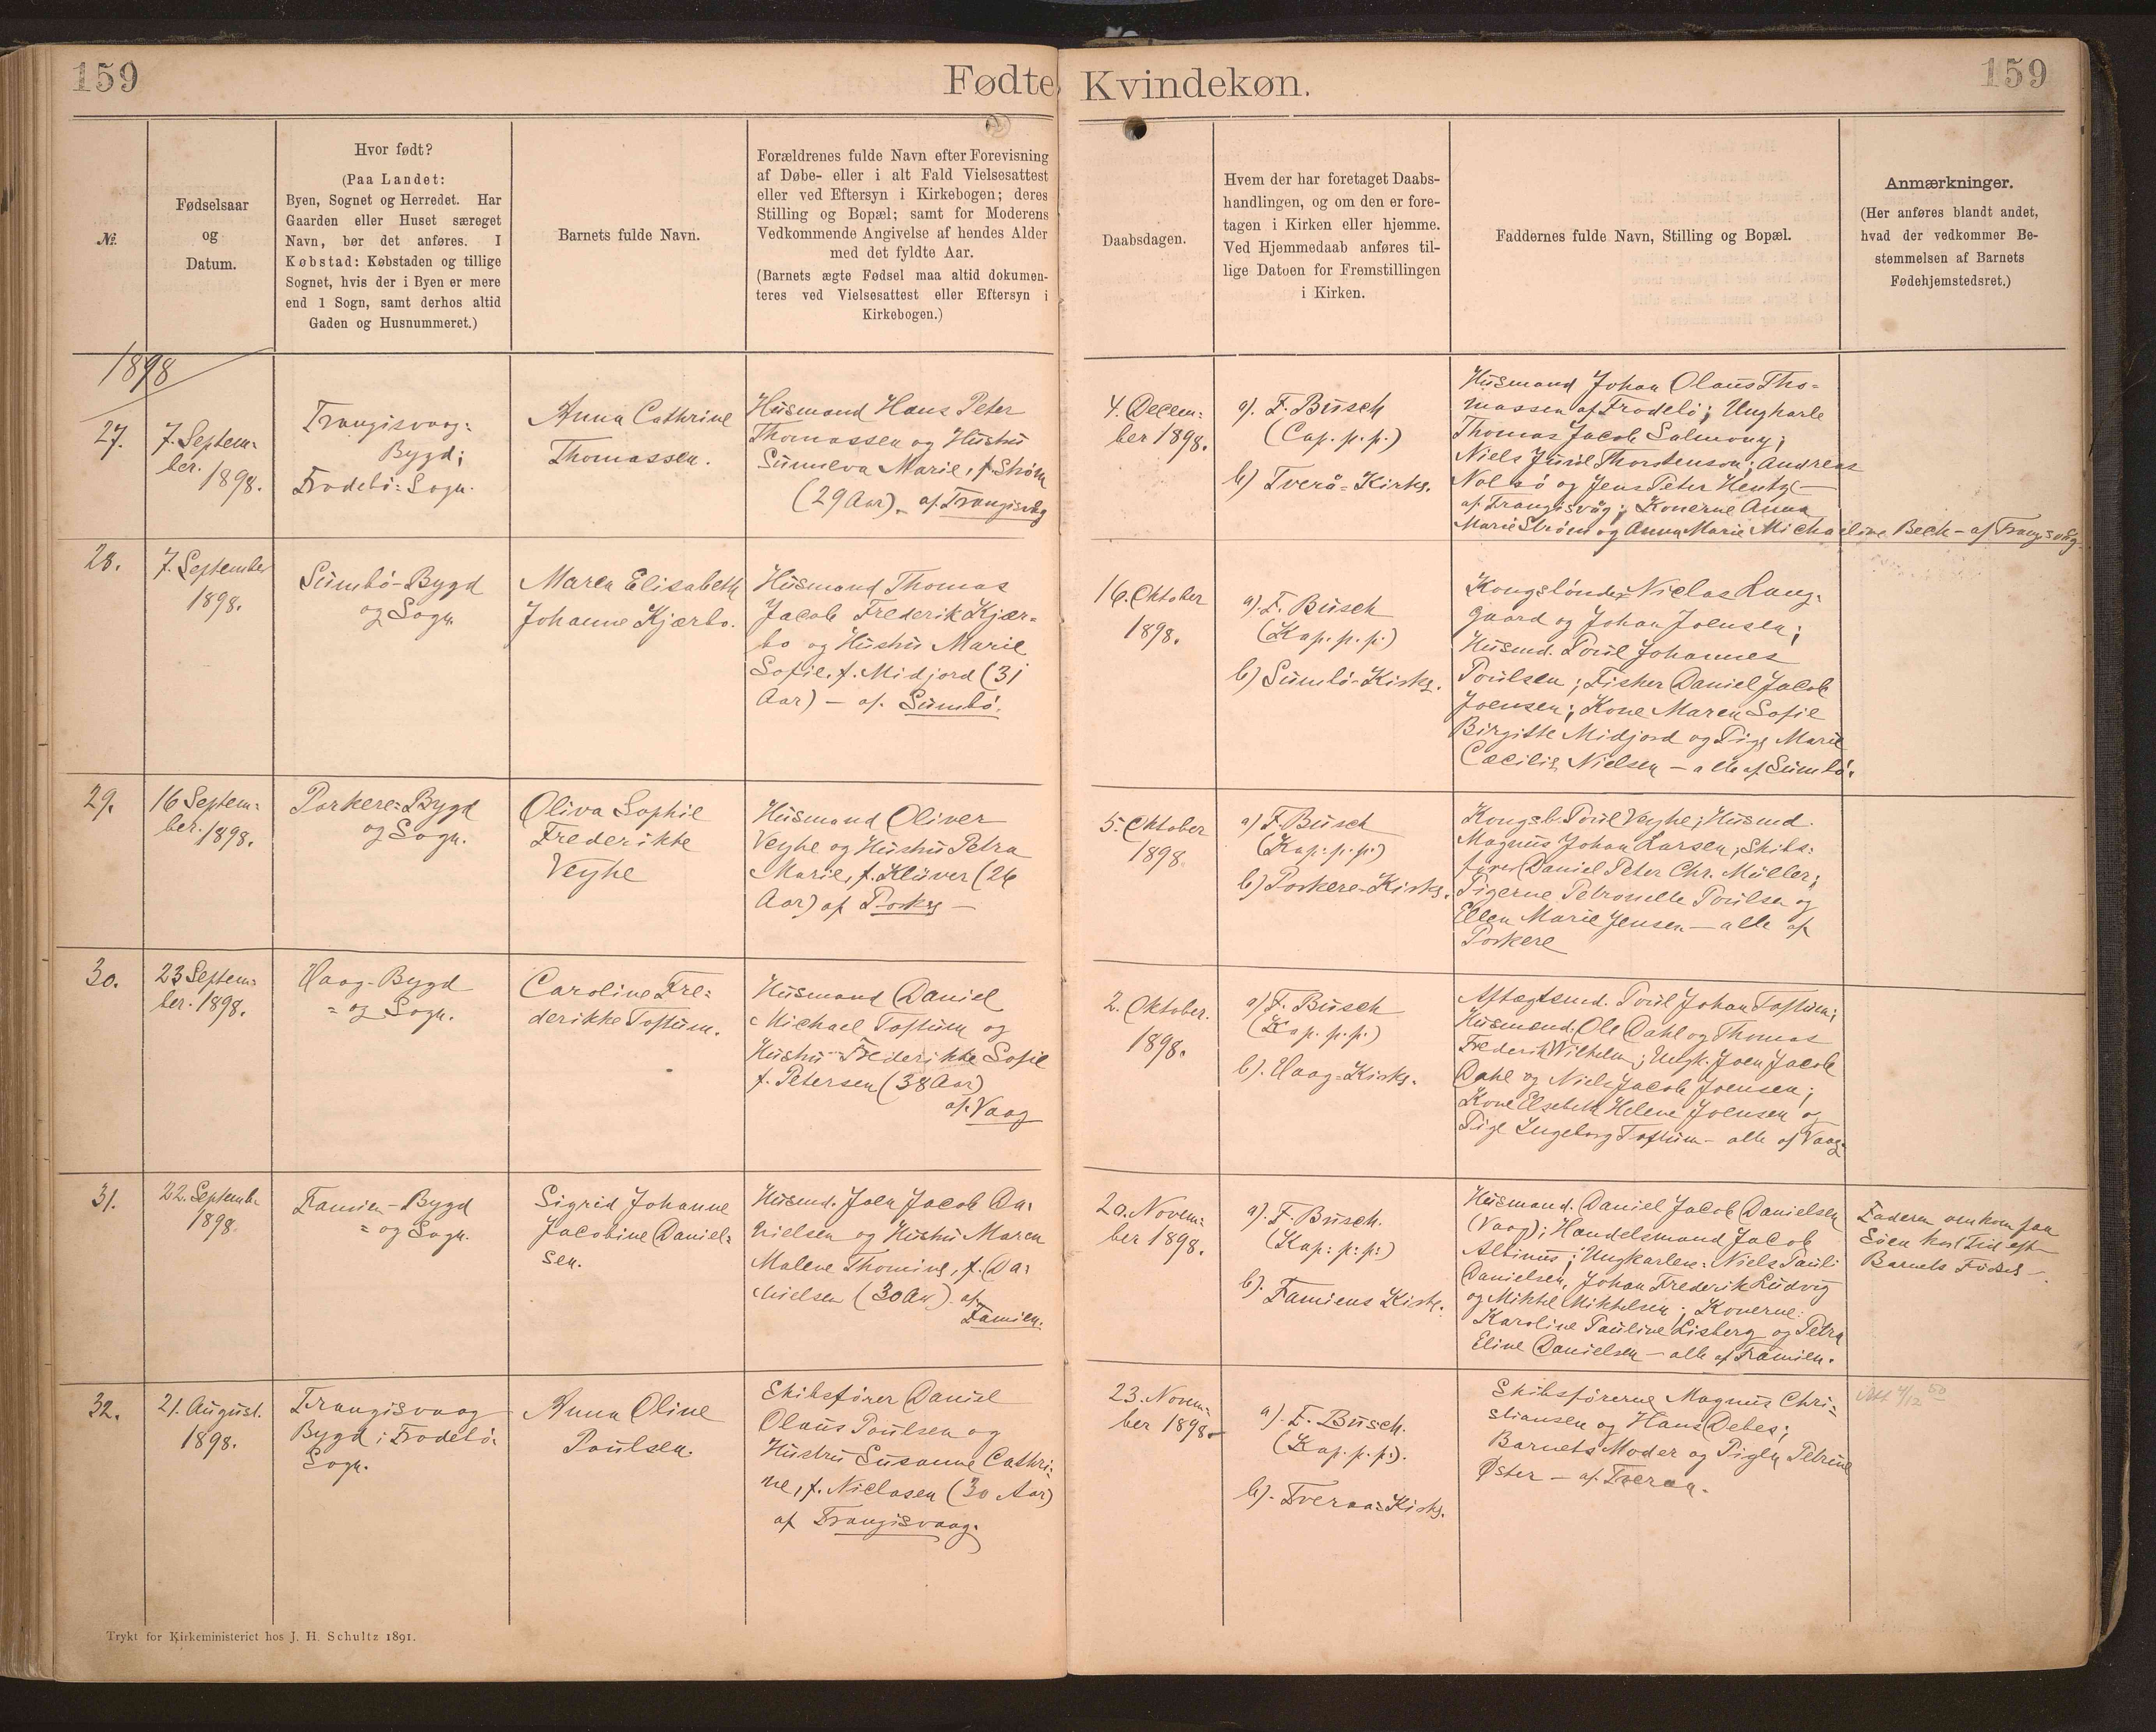 159
Fødte
Kvindekøn.
159
№.
Fødselsaar
og
Datum.
Hvor født?
(Paa Landet:
Byen, Sognet og Herredet. Har
Gaarden eller Huset særeget
Navn, bør det anføres. I
Købstad: Købstaden og tillige
Sognet, hvis der i Byen er mere
end 1 Sogn, samt derhos altid
Gaden og Husnummeret.)
Barnets fulde Navn.
Forældrenes fulde Navn efter Forevisning
af Døbe- eller i alt Fald Vielsesattest
eller ved Eftersyn i Kirkebogen; deres
Stilling og Bopæl; samt for Moderens
Vedkommende Angivelse af hendes Alder
med det fyldte Aar.
(Barnets ægte Fødsel maa altid dokumen-
teres ved Vielsesattest eller Eftersyn i
Kirkebogen.)
Daabsdagen.
Hvem der har foretaget Daabs-
handlingen, og om den er fore-
tagen i Kirken eller hjemme.
Ved Hjemmedaab anføres til-
lige Datoen for Fremstillingen
i Kirken.
Faddernes fulde Navn, Stilling og Bopæl.
Anmærkninger.
(Her anføres blandt andet,
hvad der vedkommer Be-
stemmelsen af Barnets
Fødehjemstedsret.)
1898
27.
7. Septem=
ber.
1898.
Trangisvaag=
Bygd;
Frodebø=Sogn.
Anna Cathrine
Thomassen.
Husmand Hans Peter
Thomassen og Hustru
Sunneva Marie, f. Strøm
(29 Aar). af Trangisvåg
4. Decem=
ber 1898.
a). F. Busch
(Cap. p. p.)
b) Tverå=Kirke.
Husmand Johan Olaus Tho=
massen af Frodebø; Ungkarle
Thomas Jacob Salmony;
Niels Juul Thorstenson; Andreas
Nolsø og Jens Peter Hentze
af Trangisvåg; Konerne Anna
Marie Strøm og Anna Marie Michaeline Beck - af Trangisvåg.
28.
7. September
1898.
Sumbø-Bygd
og Sogn
Maren Elisabeth
Johanne Kjærbo.
Husmand Thomas
Jacob Frederik Kjær=
bo og Hustru Marie
Sofie, f. Midjord (31
Aar) — af Sumbø.
16. Oktober
1898.
a). F. Busch
(Kap. p. p.)
b) Sumbø-Kirke.
Kongsbønder Niclas Lang=
gaard og Johan Joensen;
Husmd. Poul Johannes
Poulsen; Fisker Daniel Jacob
Joensen; Kone Maren Sofie
Birgitte Midjord og Pige Marie
Cæcilie Nielsen — alle af Sumbø.
29.
16 Septem=
ber. 1898.
Porkere=Bygd
og Sogn.
Oliva Sophie
Frederikke
Veyhe
Husmand Oliver
Veyhe og Hustru Petra
Marie, f. Klüver (26
Aar) af Porke —
5. Oktober
1898
a) F. Busch
(Kap: p. p.)
b) Porkere-Kirke.
Kongsb. Poul Veyhe; Husmd.
Magnus Johan Larsen; Skibs=
fører Daniel Peter Chr. Müller;
Pigerne Petronelle Poulsen og
Ellen Marie Jensen — alle af
Porkere
30.
23 Septem=
ber. 1898.
Vaag-Bygd
= og Sogn.
Caroline Fre=
derikke Toftum.
Husmand Daniel
Michael Toftum og
Hustru Frederikke Sofie
f. Petersen (38 Aar)
af Vaag
2. Oktober.
1898.
a) F. Busch
(Kap. p. p.)
b). Vaag=Kirke.
Aftægtsmd. Poul Johan Toftum;
Husmænd: Ole Dahl og Thomas
Frederik Wilhelm; Ungk. Joen Jacob
Dahl og Niels Jacob Joensen;
Kone Elsebeth Helene Joensen og
Pige Ingeborg Toftum — alle af Vaag.
31.
22. Septembr
1898.
Famien-Bygd
= og Sogn.
Sigrid Johanne
Jacobine Daniel=
sen.
Husmd. Joen Jacob Da=
nielsen og Hustru Maren
Malene Thomine, f. Da=
nielsen (30 Aar). af
Famien.
20. Novem=
ber 1898.
a). F. Busch.
(Kap: p: p:)
b). Famiens Kirke.
Husmand. Daniel Jacob Danielsen
(Vaag); Handelsmand Jacob
Albinus; Ungkarlene: Niels Pauli
Danielsen, Johan Frederik Ludvig
og Mikkel Mikkelsen; Konerne:
Karoline Pauline Lisberg og Petra
Eline Danielsen — alle af Famien.
Faderen omkom paa
Søen kort Tid eft
Barnets Fødsel —.
32.
21. August.
1898.
Trangisvaag
Bygd; Frodebø-
Sogn.
Anna Oline
Poulsen.
Skibsfører Daniel
Olaus Poulsen og
Hustru Susanne Cathri=
ne, f. Niclasen (30 Aar)
af Trangisvaag.
23. Novem=
ber 1898.
a). F. Busch.
(Kap. p. p.).
b). Tveraa=Kirke.
Skibsførerne Magnus Chri=
stiansen og Hans Debes;
Barnets Moder og Pigen Petrine
Øster — af Tveraa.
Att 4/12 50
Trykt for Kirkeministeriet hos J. H. Schultz 1891.